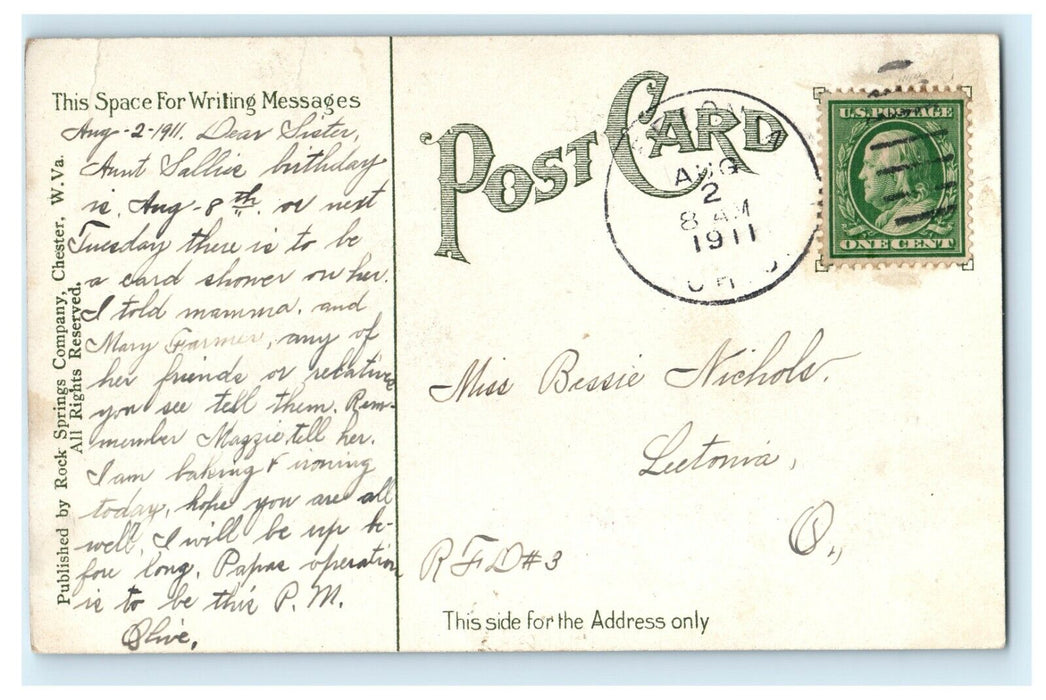 This Space For Writing Messages
Aug-2-1911. Dear Sister,
Aunt Sallie birthday
is, Aug-8th. or next
Tuesday there is to be
a card shower on her.
I told mamma, and
Mary Farmer, any of
her friends or relatives
you see tell them. Rem-
member Maggie tell her.
I am baking & ironing
today, hope you are all
well, I will be up be-
fore long. Papas operation
is to be this P. M.
Olive.
Published by Rock Springs Company, Chester, W.Va.
All Rights Reserved.
POST CARD
AUG
2
8 AM
1911
U.S. POSTAGE
ONE CENT
Miss Bessie Nichols.
Leetonia,
O.,
RFD#3
This side for the Address only